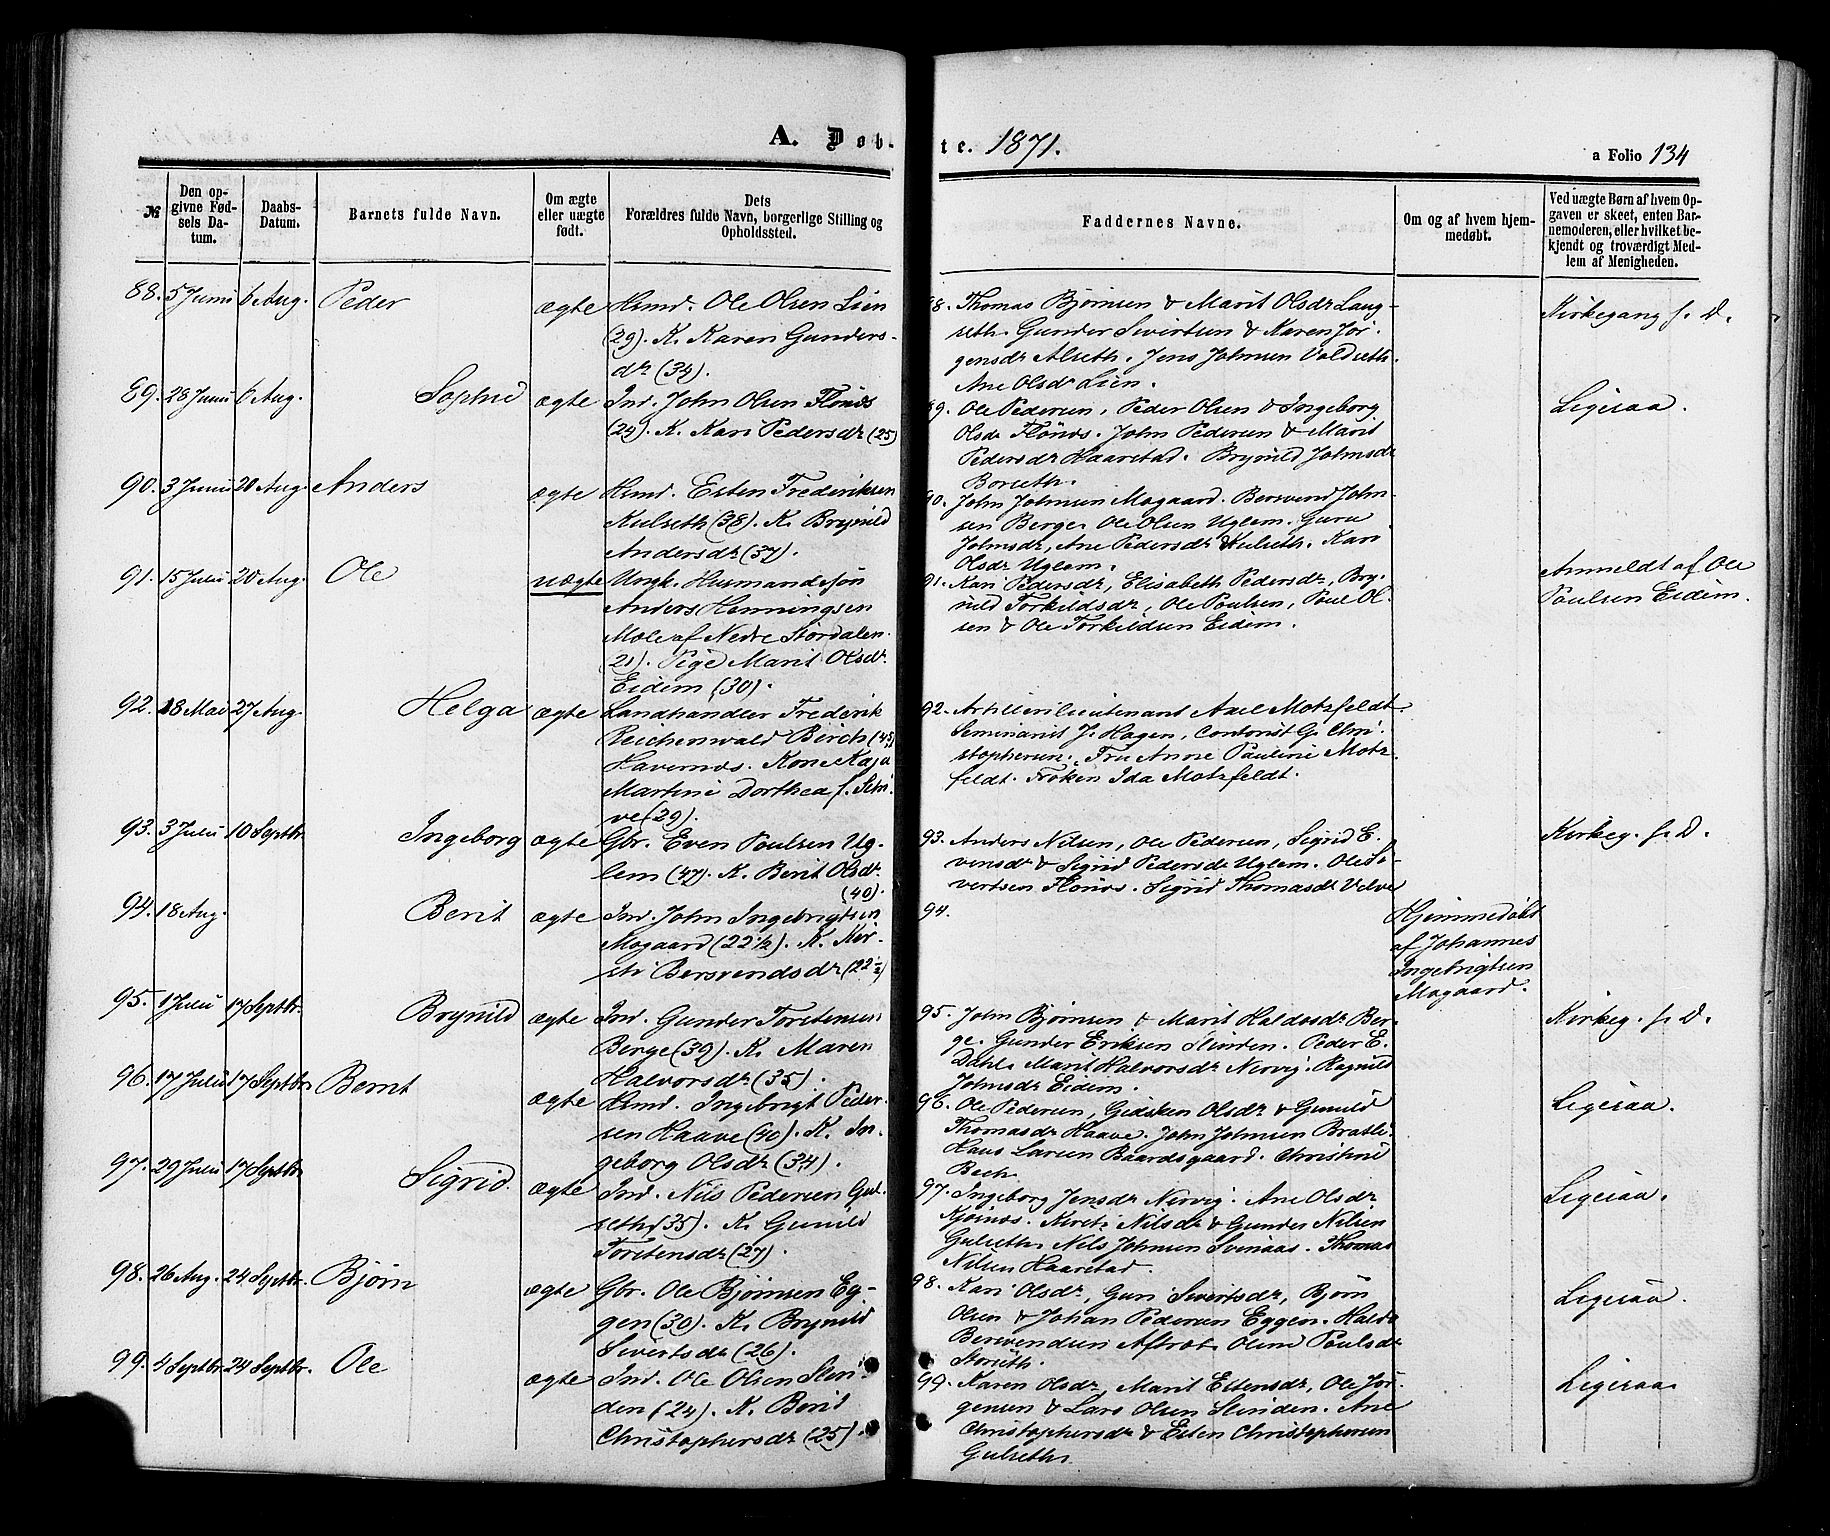 A. Døb-
te. 1871.
a Folio 134
№
Den op-
givne Fød-
sels Da-
tum.
Daabs-
Datum.
Barnets fulde Navn.
Om ægte
eller uægte
født.
Dets
Forældres fulde Navn, borgerlige Stilling og
Opholdssted.
Faddernes Navne.
Om og af hvem hjem-
medøbt.
Ved uægte Børn af hvem Op-
gaven er skeet, enten Bar-
nemoderen, eller hvilket be-
kjendt og troværdigt Med-
lem af Menigheden.
88. 5 Juni 6 Aug. Peder ægte Hsmd. Ole Olsen Lien
(29). K. Karen Gunders-
dr (34).
88. Thomas Bjørnsen & Marit Olsdr Laug-
seth. Gunder Sivertsen & Karen Jør-
gensdr Alseth. Jens Johnsen Valdseth.
Ane Olsdr Lien.
Kirkegang s. D.
89. 28 Juni 6 Aug. Sophie ægte Ind. John Olsen Flönæs
(24). K. Kari Pedersdr (25)
89. Ole Pedersen, Peder Olsen & Ingeborg
Olsdr Flönæs. John Pedersen & Marit
Pedersdr Haarstad. Brynild Johnsdr
Borseth.
Ligesaa.
90. 3 Juni 20 Aug. Anders ægte Hsmd. Esten Frederiksen
Kulseth (38). K. Brynild
Andersdr (37).
90. John Johnsen Mogaard. Bersvend John-
sen Berge. Ole Olsen Uglem. Guru
Johnsdr, Ane Pedersdr Kulseth. Kari
Olsdr Uglem.
91. 15 Juli 20 Aug. Ole uægte Ungk. Husmandssøn
Anders Henningsen
Mole af Nedre Stördalen
(21). Pige Marit Olsdr
Eidem (30).
91. Kari Pedersdr, Elisabeth Pedersdr, Bry-
nild Torkildsdr, Ole Poulsen, Poul Ol-
sen & Ole Torkildsen Eidem.
Anmeldt af Ole
Poulsen Eidem.
92. 18 Mai 27 Aug. Helga ægte Landhandler Frederik
Reichenwald Birch (45)
Havernæs. Kone Kaja
Martine Dorthea f. Sem-
ve (29).
92. Artillerilieutenant Axel Motzfeldt.
Seminarist J. Hagen, Contorist G. Chri-
stophersen. Fru Anne Pauline Motz-
feldt. Frøken Ida Motzfeldt.
93. 3 Juli 10 Septbr. Ingeborg ægte Gbr. Even Poulsen Ug-
lem (47). K. Berit Olsdr.
(40).
93. Anders Nilsen, Ole Pedersen, Sigrid E-
vensdr & Sigrid Pedersdr Uglem. Ole Si-
vertsen Flönæs. Sigrid Thomasdr Velve
Kirkeg. s. D.
94. 18 Aug. Berit ægte Ind. John Ingebrigtsen
Mogaard (22 1/2). K. Kir-
sti Bersvendsdr (22 1/2)
94.
Hjemmedøbt
af Johannes
Ingebrigtsen
Mogaard.
95. 1 Juli 17 Septbr. Brynild ægte Ind. Gunder Torstensen
Berge (39). K. Maren
Halvorsdr (35).
95. John Bjørnsen & Marit Haldosdr Ber-
ge. Gunder Eriksen Slinden. Peder E.
Dahl. Marit Halvorsdr Nervig. Ragnild
Johnsdr Eidem.
Kirkeg. s. D.
96. 17 Juli 17 Septbr. Bernt ægte Hsmd. Ingebrigt Peder-
sen Haave (40). K. In-
geborg Olsdr (34).
96. Ole Pedersen, Gidsken Olsdr & Gunild
Thomasdr Haave. John Johnsen Bratli.
Hans Larsen Baardsgaard. Christine
Bech.
Ligesaa.
97. 29 Juli 17 Septbr. Sigrid. ægte Ind. Nils Pedersen Gul-
seth (35). K. Gunild
Torstensdr (27).
97. Ingeborg Jensdr Nervig. Ane Olsdr
Kjösnæs. Kirsti Nilsdr & Gunder Nilsen
Gulseth. Nils Johnsen Svinaas. Thomas
Nilsen Haarstad.
Ligesaa.
98. 26 Aug. 24 Septbr. Bjørn ægte Gbr. Ole Bjørnsen Eg-
gen (30). K. Brynild
Sivertsdr (26).
98. Kari Olsdr, Guri Sivertsdr, Bjørn
Olsen & Johan Pedersen Eggen. Haldo
Bersvendsen Aftret. Oline Poulsdr
Storseth.
Ligesaa.
99. 4 Septbr. 24 Septbr. Ole ægte Ind. Ole Olsen Slin-
den (24). K. Berit
Christophersdr (25).
99. Karen Olsdr, Marit Estensdr, Ole Jør-
gensen & Lars Olsen Slinden. Ane
Christophersdr & Esten Christophersen
Gulseth.
Ligesaa.